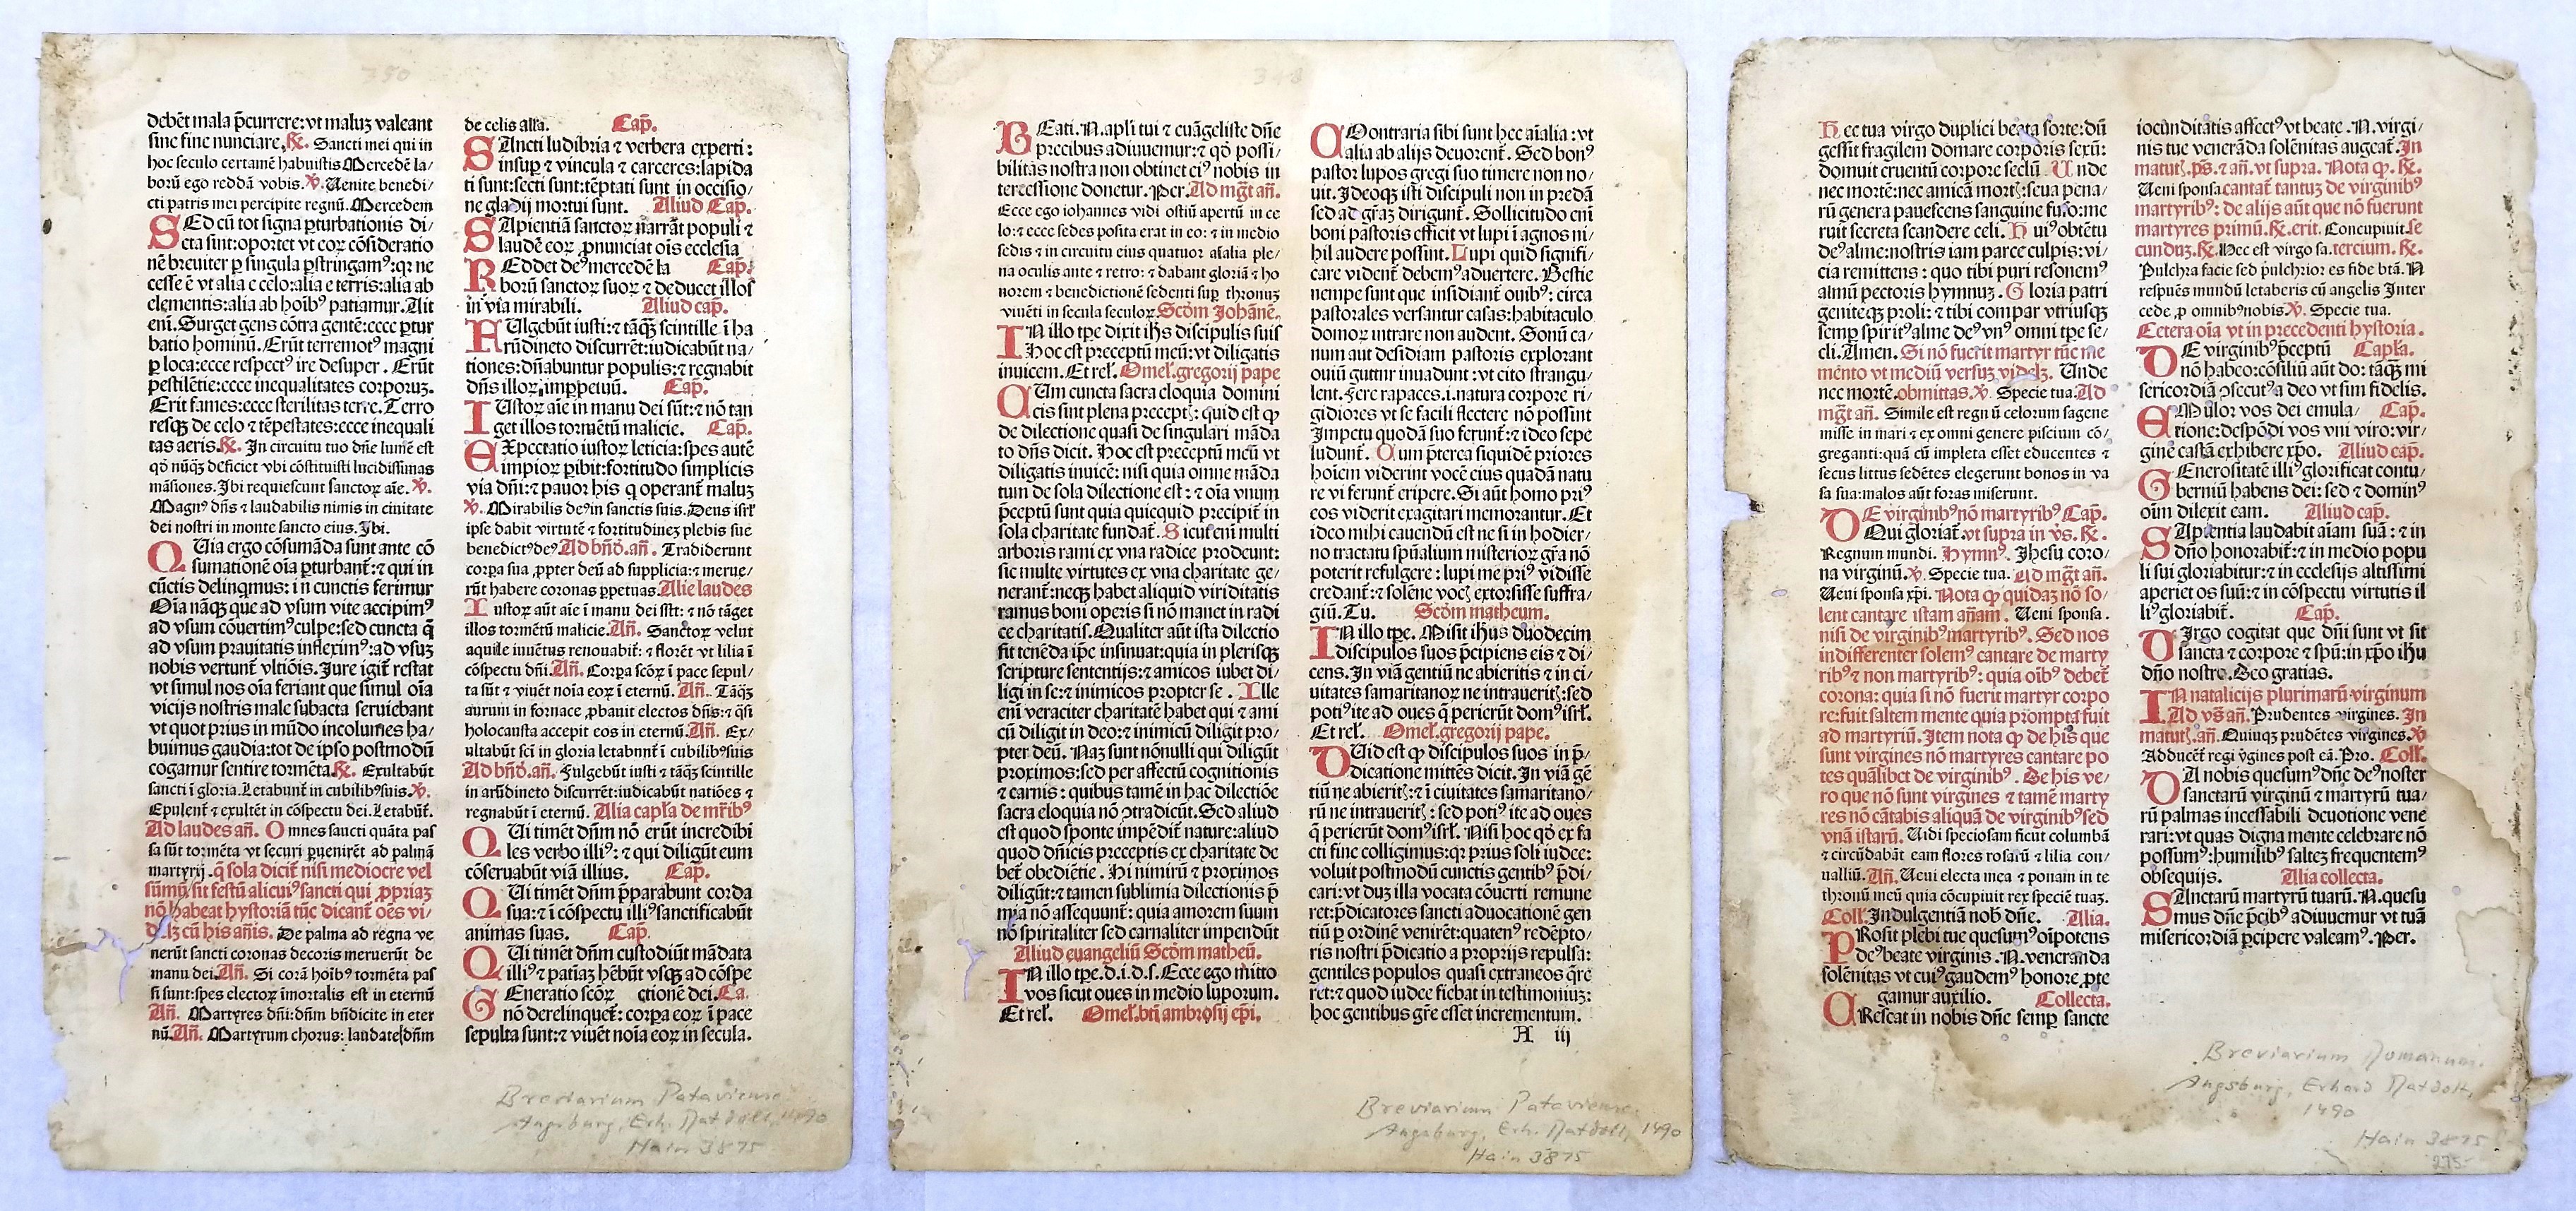 350
debēt mala p̄currere: vt maluꝫ valeant
sine fine nunciare. ℟. Sancti mei qui in
hoc seculo certamē habuistis Mercedē la/
borū ego reddā vobis. ℣. Uenite benedi/
cti patris mei percipite regnū. Mercedem
SEd cū tot signa ꝑturbationis di/
cta sint: oportet vt eoꝝ cōsideratio
nē breuiter ꝑ singula ꝑstringamꝰ: qꝛ ne
cesse ē vt alia e celo: alia e terris: alia ab
elementis: alia ab hoībꝰ patiamur. Ait
eni. Surget gens cōtra gentē: ecce ꝑtur
batio hominū. Erūt terremotꝰ magni
ꝑ loca: ecce respectꝰ ire desuper. Erūt
pestilētie: ecce inequalitates corporuꝫ.
Erit fames: ecce sterilitas terre. Terro
resqꝫ de celo ⁊ tēpestates: ecce inequali
tas aeris. ℟. In circuitu tuo dn̄e lumē est
qd̄ nūqꝫ deficiet vbi cōstituisti lucidissimas
māsiones. Ibi requiescunt sanctoꝝ aīe. ℣.
Magnꝰ dn̄s ⁊ laudabilis nimis in ciuitate
dei nostri in monte sancto eius. Ibi.
QUia ergo cōsumāda sunt ante cō
sumationē oīa ꝑturbant̄: ⁊ qui in
cūctis delinqmus: in cunctis ferimur
Oīa nāqꝫ que ad vsum vite accipimꝰ
ad vsum cōuertimꝰ culpe: sed cuncta q̄
ad vsum prauitatis inflexīmꝰ: ad vsuꝫ
nobis vertunt̄ vltiōis. Iure igit̄ restat
vt simul nos oīa feriant que simul oīa
vicijs nostris male subacta seruiebant
vt quot prius in mūdo incolumes ha/
buimus gaudia: tot de ipso postmodū
cogamur sentire tormēta. ℟. Exultabūt
sancti ī gloria. Letabunt̄ in cubilibꝰ suis. ℣.
Epulent̄ ⁊ exultēt in cōspectu dei. Letabūt̄.
Ad laudes an̄. Omnes sancti quāta pas
sa sūt tormēta vt securi ꝑuenirēt ad palmā
martyrij. q̄ sola dicit̄ nisi mediocre vel
sūmū sit festū alicuiꝰ sancti qui ꝓpriaꝫ
nō habeat hystoriā tūc dicant̄ oēs vi/
delꝫ cū his an̄is. De palma ad regna ve
nerūt sancti coronas decoris meruerūt de
manu dei. An̄. Si corā hoībꝰ tormēta pas
si sunt: spes electoꝝ īmortalis est in eternū
An̄. Martyres dn̄i: dn̄m bn̄dicite in eter
nū. An̄. Martyrum chorus: laudate dn̄m
de celis alla. Cap̄.
SAncti ludibria ⁊ verbera experti:
insuꝑ ⁊ vincula ⁊ carceres: lapida
ti sunt: secti sunt: tēptati sunt in occisio/
ne gladij mortui sunt. Aliud Cap̄.
SApientiā sanctoꝝ narrāt populi ⁊
laudē eoꝝ ꝓnunciat oīs ecclesia
REddet deꝰ mercedē la Cap̄.
borū sanctoꝝ suoꝝ ⁊ deducet illos
in via mirabili. Aliud cap̄.
FUlgebūt iusti: ⁊ tāqꝫ scintille ī ha
rūdineto discurrēt: iudicabūt na/
tiones: dn̄abuntur populis: ⁊ regnabit
dn̄s illoꝝ imꝑpetuū. Cap̄.
IUstoꝝ aīe in manu dei sūt: ⁊ nō tan
get illos tormētū malicie. Cap̄.
EXpectatio iustoꝝ leticia: spes autē
impioꝝ ꝑibit: fortitudo simplicis
via dn̄i: ⁊ pauor his q operant̄ maluꝫ
℣. Mirabilis deꝰ in sanctis suis. Deus isrl̄
ipse dabit virtutē ⁊ fortitudineꝫ plebis sue
benedictꝰ deꝰ. Ad bn̄d. an̄. Tradiderunt
corpa sua ꝓpter deū ad supplicia: ⁊ merue/
rūt habere coronas ꝑpetuas. Alie laudes
Iustoꝝ aūt aīe ī manu dei sūt: ⁊ nō tāget
illos tormētū malicie. An̄. Sanctoꝝ velut
aquile iuuētus renouabit̄: ⁊ florēt vt lilia ī
cōspectu dn̄i. An̄. Corpa scōꝝ ī pace sepul/
ta sūt ⁊ viuēt noīa eoꝝ ī eternū. An̄. Tāqꝫ
aurum in fornace ꝓbauit electos dn̄s: ⁊ q̄si
holocausta accepit eos in eternū. An̄. Ex/
ultabūt sc̄i in gloria letabunt̄ ī cubilibꝰ suis
Ad bn̄d. an̄. Fulgebūt iusti ⁊ tāqꝫ scintille
in arūdineto discurrēt: iudicabūt natiōes ⁊
regnabūt ī eternū. Alia capl̄a de mr̄ibꝰ
QUi timēt dn̄m nō erūt incredibi
les verbo illiꝰ: ⁊ qui diligūt eum
cōseruabūt viā illius. Cap̄.
QUi timēt dn̄m p̄parabunt corda
sua: ⁊ ī cōspectu illiꝰ sanctificabūt
animas suas. Cap̄.
QUi timēt dn̄m custodiūt mādata
illiꝰ ⁊ patiaꝫ hēbūt vsqꝫ ad cōspe
GEneratio scōꝝ ctionē dei. Ca.
nō derelinquet̄: corpa eoꝝ ī pace
sepulta sunt: ⁊ viuēt noīa eoꝝ in secula.
Breviarium Pataviense.
Augsburg, Erh. Ratdolt, 1490
Hain 3875
BEati. N. apl̄i tui ⁊ euāgeliste dn̄e
precibus adiuuemur: ⁊ qd̄ possi/
bilitas nostra non obtinet eiꝰ nobis in
tercessione donetur. Per. Ad mḡt an̄.
Ecce ego iohannes vidi ostiū apertū in ce
lo: ⁊ ecce sedes posita erat in eo: ⁊ in medio
sedis ⁊ in circuitu eius quatuor aīalia ple/
na oculis ante ⁊ retro: ⁊ dabant gloriā ⁊ ho
norem ⁊ benedictionē sedenti suꝑ thronuꝫ
viuēti in secula seculoꝝ. Scd̄m Johānē.
IN illo tꝑe dixit ihs̄ discipulis suis
Hoc est preceptū meū: vt diligatis
inuicem. Et rel̄. Omel̄. gregorij pape
CUm cuncta sacra eloquia domini
cis sint plena preceptꝭ: quid est qꝙ
de dilectione quasi de singulari māda
to dn̄s dicit. Hoc est preceptū meū vt
diligatis inuicē: nisi quia omne māda
tum de sola dilectione est: ⁊ oīa vnum
p̄ceptū sunt quia quicquid precipit̄ in
sola charitate fundat̄. Sicut eni multi
arboris rami ex vna radice prodeunt:
sic multe virtutes ex vna charitate ge/
nerant̄: necqꝫ habet aliquid viriditatis
ramus boni operis si nō manet in radi
ce charitatis. Qualiter aūt ista dilectio
sit tenēda ip̄e insinuat: quia in plerisqꝫ
scripture sententijs: ⁊ amicos iubet di/
ligi in se: ⁊ inimicos propter se. Ille
eni veraciter charitatē habet qui ⁊ ami
cū diligit in deo: ⁊ inimicū diligit pro/
pter deū. Naꝫ sunt nōnulli qui diligūt
proximos: sed per affectū cognitionis
⁊ carnis: quibus tamē in hac dilectiōe
sacra eloquia nō ꝯtradicūt. Sed aliud
est quod sponte impēdit̄ nature: aliud
quod dn̄icis preceptis ex charitate de
bet̄ obediētie. Hi nimirū ⁊ proximos
diligūt: ⁊ tamen sublimia dilectionis p̄
mia nō assequunt̄: quia amorem suum
nō spiritaliter sed carnaliter impendūt
Aliud euangeliū Scd̄m matheū.
IN illo tꝑe. d. i. d. s. Ecce ego mitto
vos sicut oues in medio luporum.
Et rel̄. Omel̄. bti ambrosij ep̄i.
COntraria sibi sunt hec aīalia: vt
alia ab alijs deuorent̄. Sed bonꝰ
pastor lupos gregi suo timere non no/
uit. Ideoqꝫ isti discipuli non in predā
sed ad gr̄aꝫ dirigunt̄. Sollicitudo eni
boni pastoris efficit vt lupi ī agnos ni/
hil audere possint. Lupi quid signifi/
care vident̄ debemꝰ aduertere. Bestie
nempe sunt que insidiant̄ ouibꝰ: circa
pastorales versantur casas: habitaculo
domoꝝ intrare non audent. Sonū ca/
num aut desidiam pastoris explorant
ouiū guttur inuadunt: vt cito strangu/
lent. Fere rapaces. i. natura corpore ri/
gidiores vt se facili flectere nō possint
Impetu quodā suo ferunt̄: ⁊ ideo sepe
ludunt̄. Cum p̄terea siquidē priores
hoīem viderint vocē eius quadā natu
re vi ferunt̄ eripere. Si aūt homo priꝰ
eos viderit exagitari memorantur. Et
ideo mihi cauendū est ne si in hodier/
no tractatu spūalium misterioꝝ gr̄a nō
poterit refulgere: lupi me priꝰ vidisse
credant̄: ⁊ solēne vocꝭ extorsisse suffra/
giū. Tu. Scd̄m matheum.
IN illo tꝑe. Misit ihūs duodecim
discipulos suos p̄cipiens eis ⁊ di/
cens. In viā gentiū ne abieritis ⁊ in ci/
uitates samaritanoꝝ ne intraueritꝭ: sed
potiꝰ ite ad oues q̄ perierūt domꝰ isrl̄.
Et rel̄. Omel̄. gregorij pape.
QUid est qꝙ discipulos suos in p̄/
dicatione mittēs dicit. In viā gē
tiū ne abieritꝭ: ⁊ ī ciuitates samaritano/
rū ne intraueritꝭ: sed potiꝰ ite ad oues
q̄ perierūt domꝰ isrl̄. Nisi hoc qd̄ ex fa
cti fine colligimus: qꝛ prius soli iudee:
voluit postmodū cunctis gentibꝰ p̄di/
cari: vt duꝫ illa vocata cōuerti remune
ret: p̄dicatores sancti aduocationē gen
tiū ꝑ ordinē venirēt: quatenꝰ redēpto/
ris nostri p̄dicatio a proprijs repulsa:
gentiles populos quasi extraneos q̄re
ret: ⁊ quod iudee fiebat in testimoniuꝫ:
hoc gentibus gr̄e esset incrementum.
A iii
Breviarium Pataviense.
Augsburg, Erh. Ratdolt, 1490
Hain 3875
Hec tua virgo duplici beata sorte: dū
gessit fragilem domare corporis sexū:
domuit cruentū corpore seclū Unde
nec mortē: nec amica mortꝭ: seua pena/
rū genera pauescens sanguine fuso: me
ruit secreta scandere celi. Huiꝰ obtētu
deꝰ alme: nostris iam parce culpis: vi/
cia remittens: quo tibi puri resonemꝰ
almū pectoris hymnuꝫ. Gloria patri
geniteqꝫ proli: ⁊ tibi compar vtriusqꝫ
semꝑ spiritꝰ alme deꝰ vnꝰ omni tꝑe se/
cli. Amen. Si nō fuerit martyr tūc me
mento vt mediū versuꝫ videlꝫ. Unde
nec mortē. obmittas. ℣. Specie tua. Ad
mḡt an̄. Simile est regnū celorum sagene
misse in mari ⁊ ex omni genere piscium cō/
greganti: quā cū impleta esset educentes ⁊
secus littus sedētes elegerunt bonos in va
sa sua: malos aūt foras miserunt.
DE virginibꝰ nō martyribꝰ Cap̄.
Qui gloriat̄. vt supra in v̄s. ℟.
Regnum mundi. Hymnꝰ. Jhesu coro/
na virginū. ℣. Specie tua. Ad mḡt an̄.
Ueni sponsa xp̄i. Nota qꝙ quidaꝫ nō so/
lent cantare istam an̄am. Ueni sponsa.
nisi de virginibꝰ martyribꝰ. Sed nos
indifferenter solemꝰ cantare de marty
ribꝰ ⁊ non martyribꝰ: quia oībꝰ debet̄
corona: quia si nō fuerit martyr corpo
re: fuit saltem mente quia prompta fuit
ad martyriū. Item nota qꝙ de his que
sunt virgines nō martyres cantare po
tes quālibet de virginibꝰ. De his ve/
ro que nō sunt virgines ⁊ tamē marty
res nō cātabis aliquā de virginibꝰ sed
vnā istarū. Uidi speciosam sicut columbā
⁊ circūdabāt eam flores rosarū ⁊ lilia con/
ualliū. An̄. Ueni electa mea ⁊ ponam in te
thronū meū quia cōcupiuit rex speciē tuaꝫ.
Coll̄. Indulgentiā nob̄ dn̄e. Alia.
PRosit plebi tue quesumꝰ oīpotens
deꝰ beate virginis. N. veneranda
solēnitas vt cuiꝰ gaudemꝰ honore ꝓte
gamur auxilio. Collecta.
CRescat in nobis dn̄e semꝑ sancte
iocūditatis affectꝰ vt beate. N. virgi/
nis tue venerāda solēnitas augeat̄. In
matutꝭ. p̄s. ⁊ an̄. vt supra. Nota qꝙ. ℟.
Ueni sponsa cantat̄ tantuꝫ de virginibꝰ
martyribꝰ: de alijs aūt que nō fuerunt
martyres primū. ℟. erit. Concupiuit se
cunduꝫ. ℟. Hec est virgo sa. tercium. ℟.
Pulchra facie sed pulchrior es fide btā. N
respuēs mundū letaberis cū angelis Inter
cede ꝓ omnibꝰ nobis. ℣. Specie tua.
Cetera oīa vt in precedenti hystoria.
DE virginibꝰ p̄ceptū Capl̄a.
nō habeo: cōsiliū aūt do: tāqꝫ mi
sericordiā ꝯsecutꝰ a deo vt sim fidelis.
EMulor vos dei emula/ Cap̄.
tione: despōdi vos vni viro: vir/
ginē castā exhibere xp̄o. Aliud cap̄.
GEnerositatē illiꝰ glorificat contu/
berniū habens dei: sed ⁊ dominꝰ
oīm dilexit eam. Aliud cap̄.
SApientia laudabit aīam suā: ⁊ in
dn̄o honorabit̄: ⁊ in medio popu
li sui gloriabitur: ⁊ in ecclesijs altissimi
aperiet os suū: ⁊ in cōspectu virtutis il
liꝰ gloriabit̄. Cap̄.
UIrgo cogitat que dn̄i sunt vt sit
sancta ⁊ corpore ⁊ spū: in xp̄o ihū
dn̄o nostro. Deo gratias.
IN natalicijs plurimarū virginum
Ad v̄s an̄. Prudentes virgines. In
matutꝭ. an̄. Quinqꝫ prudētes virgines. ℣
Adducēt regi v̄gines post eā. Pro. Coll̄.
DA nobis quesumꝰ dn̄e deꝰ noster
sanctarū virginū ⁊ martyrū tua/
rū palmas incessabili deuotione vene
rari: vt quas digna mente celebrare nō
possumꝰ: humilibꝰ salteꝫ frequentemꝰ
obsequijs. Alia collecta.
SAnctarū martyrū tuarū. N. quesu
mus dn̄e p̄cibꝰ adiuuemur vt tuā
misericordiā ꝑcipere valeamꝰ. Per.
Breviarium Romanum.
Augsburg, Erhard Ratdolt,
1490
Hain 3875
275-